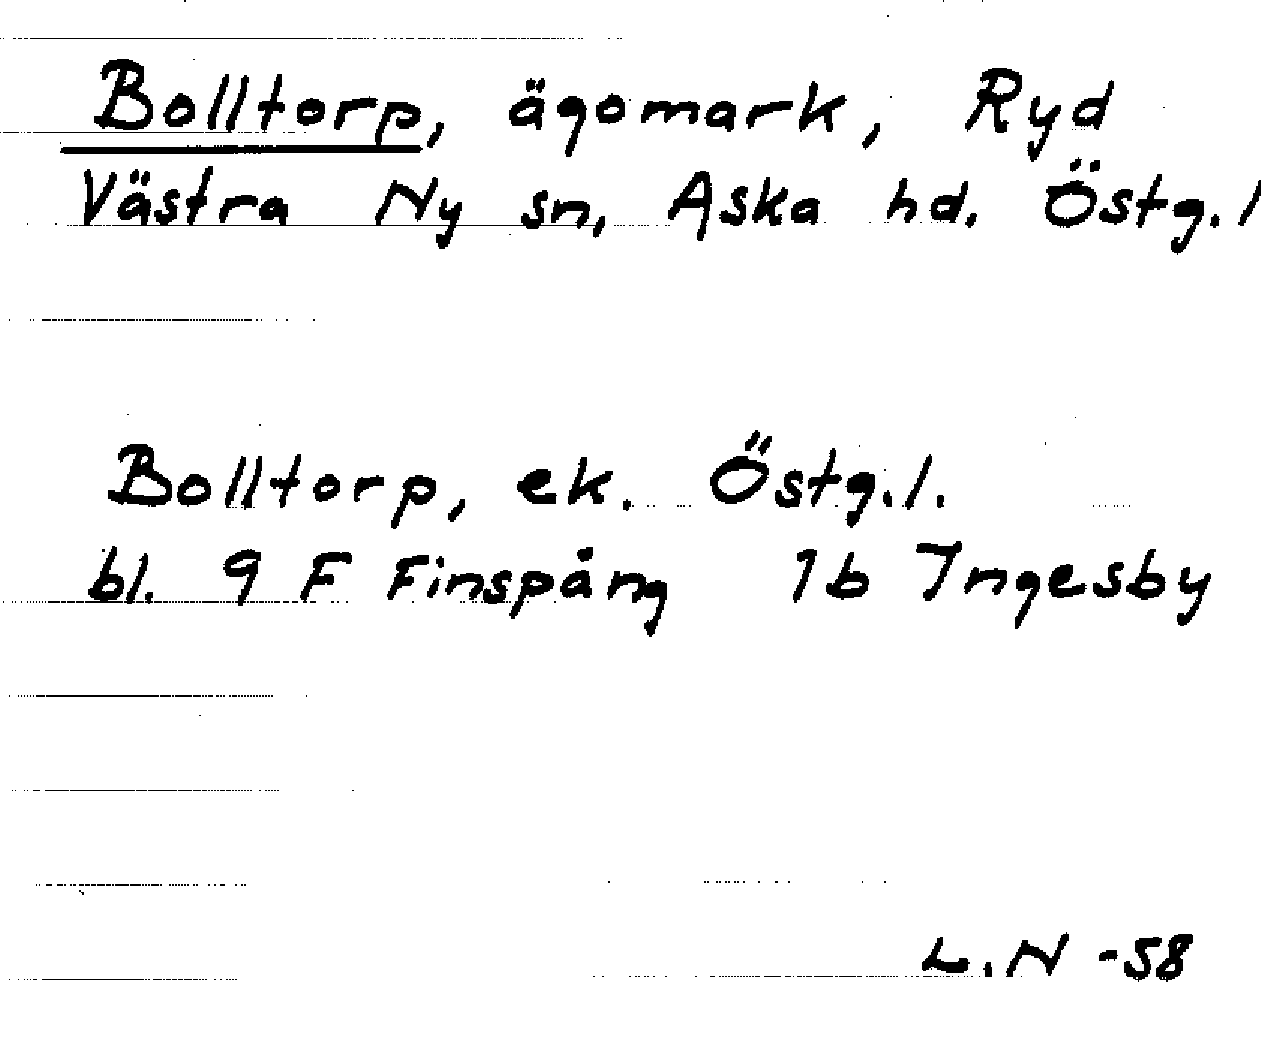 Bolltorp, ägomark, Ryd
Västra Ny sn, Aska hd. Östg.l
Bolltorp, ek. Östg.l.
bl. 9 F Finspång 1b Ingesby
L.N -58